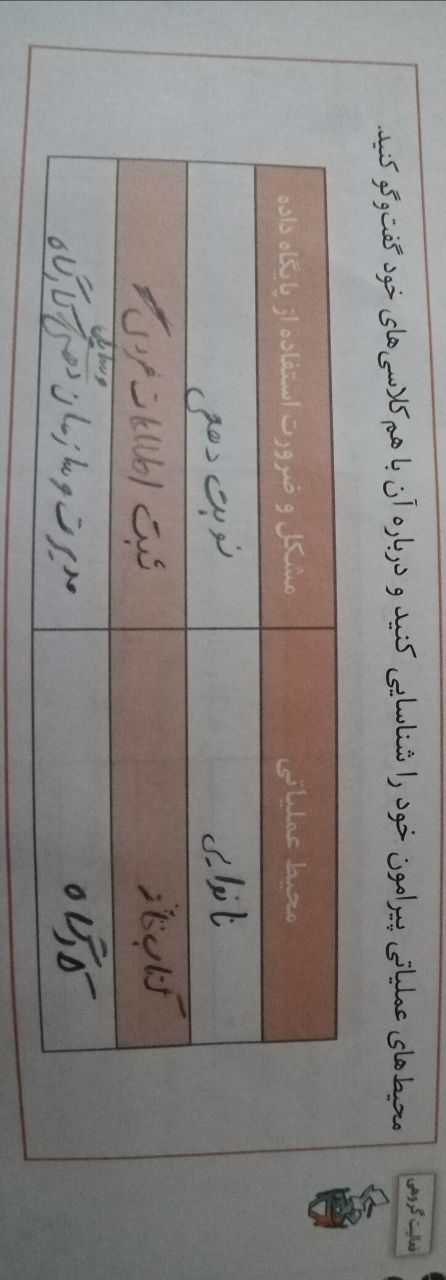 فعالیت گروهی
محیط‌های عملیاتی پیرامون خود را شناسایی کنید و درباره آن با هم‌کلاسی‌های خود گفت‌وگو کنید.
محیط عملیاتی	مشکل و ضرورت استفاده از پایگاه داده
نانوایی	نوبت دهی
کتاب خانه	ثبت اطلاعات فردی
کارگاه	مدیریت و سازمان دهی وسایل کارگاه